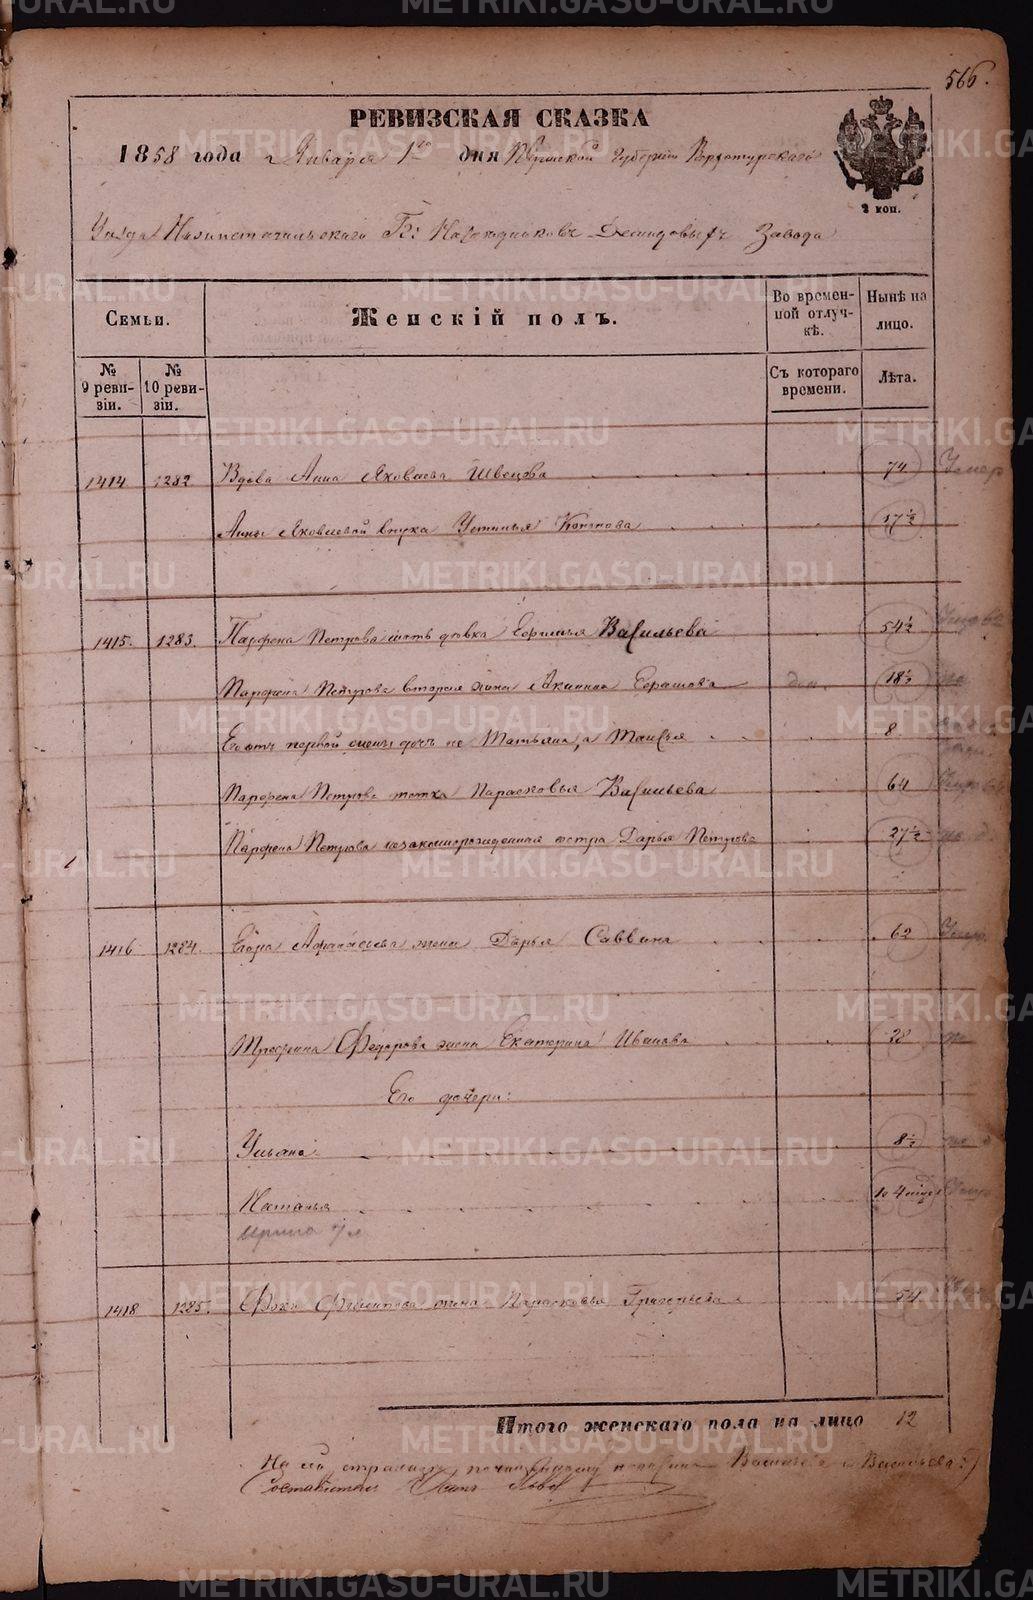 566.
РЕВИЗСКАЯ СКАЗКА
1858 года Января 1го дня Пермской Губернии Верхотурскаго
2 коп.
Уезда Нижнетагильскаго Гг: Наследников Демидовых Завода
Семьи. Женскій полъ. Во временной отлучкѣ. Нынѣ на лицо.
№ 9 ревизіи. № 10 ревизіи. Съ котораго времени. Лѣта.
1414 1282 Вдова Анна Яковлева Швецова 74 Умер
Анны Яковлевой внука Устинья Кононова 17½
1415. 1283. Парфена Петрова мать девка Ефимья Васильева 54½
Парфена Петрова вторая жена Акилина 18½
Его от первой жены дочь не Татьяна, а Таисья 8
Парфена Петрова тетка Парасковья Васильева 64
Парфена Петрова незаконнорожденная сестра Дарья Петрова 27½
1416 1284. Егора Афанасьева жена Дарья Саввина 62
Трофима Федорова жена Екатерина Иванова 28
Его дочери:
Ульяна 8½
Наталья 4
1418 1285. Филипова жена Парасковья Григорьева 54
Итого женскаго пола на лицо 12
На сей странице по Васильева Васильева
Составитель
METRIKI.GASO-URAL.RU